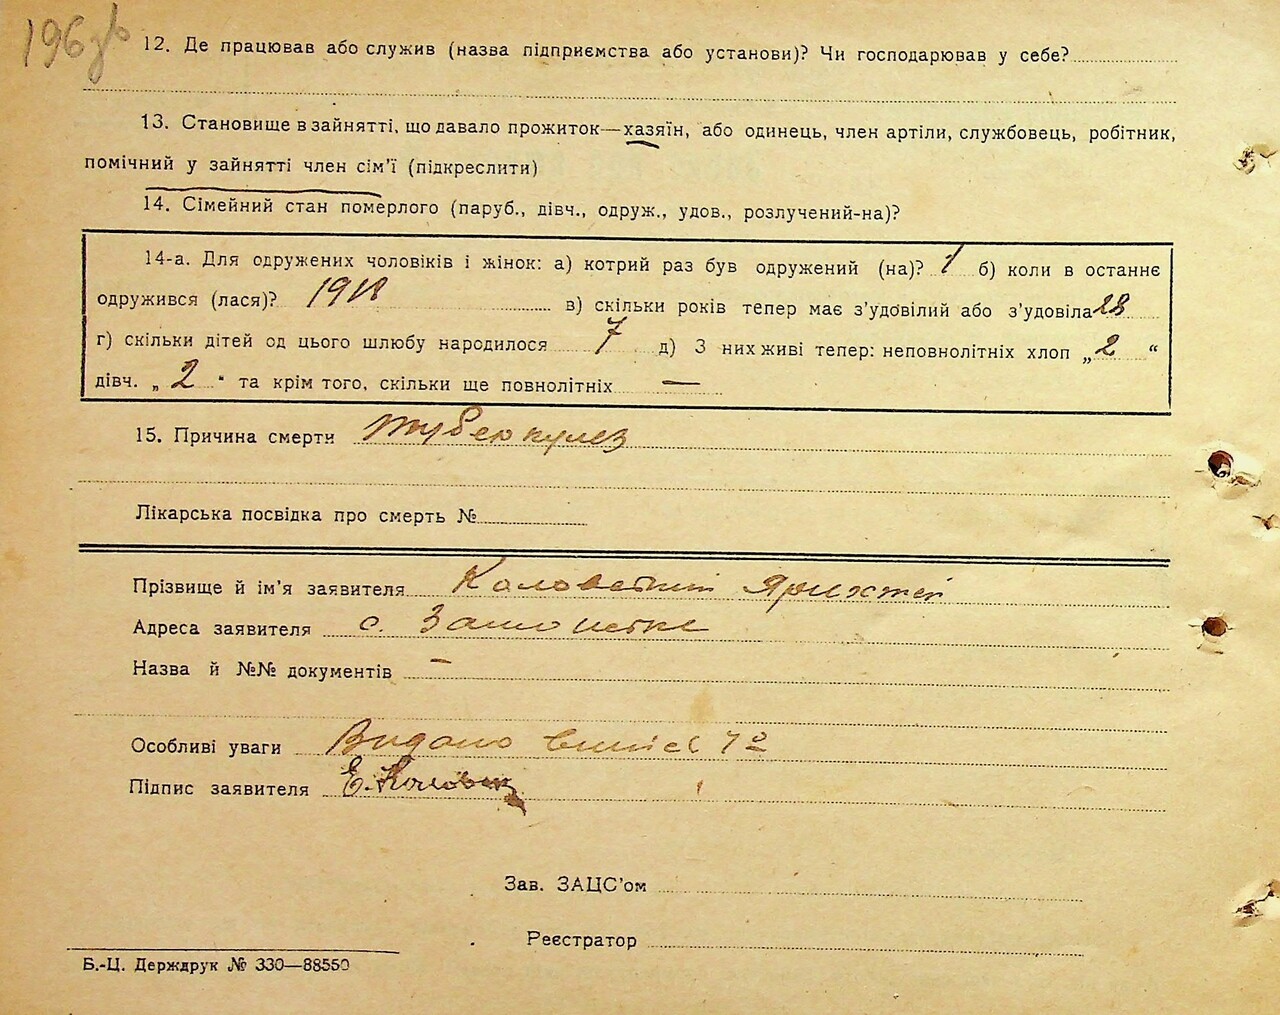 196 зв
12. Де працював або служив (назва підприємства або установи)? Чи господарював у себе?
13. Становище в зайнятті, що давало прожиток—хазяїн, або одинець, член артіли, службовець, робітник,
помічний у зайнятті член сім'ї (підкреслити)
14. Сімейний стан померлого (паруб., дівч., одруж., удов., розлучений-на)?
14-а. Для одружених чоловіків і жінок: а) котрий раз був одружений (на)? 1 б) коли в останнє
одружився (лася)? в) скільки років тепер має з'удовілий або з'удовіла 28
г) скільки дітей од цього шлюбу народилося 7 д) З них живі тепер: неповнолітніх хлоп „ 2 “
дівч. „ 2 “ та крім того, скільки ще повнолітніх —
15. Причина смерти туберкульоз
Лікарська посвідка про смерть №
Прізвище й ім'я заявителя
Адреса заявителя с.
Назва й №№ документів —
Особливі уваги Видано
Підпис заявителя Е.
Зав. ЗАЦС'ом
Реєстратор
Б.-Ц. Держдрук № 330—88550